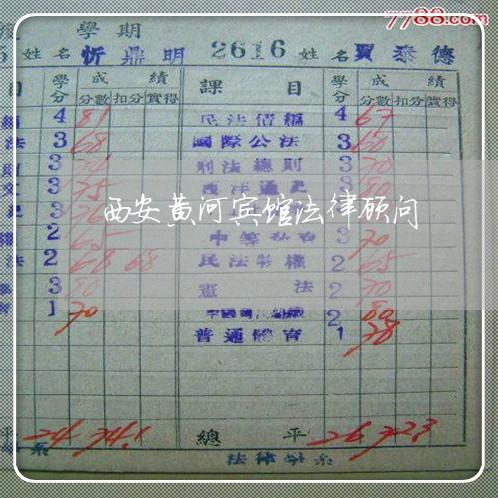 7788.com
學期
姓名 忻鼎明 2616 姓名 賈泰德
目 學分 成績 課目 學分 成績
分數 扣分 實得 分數 扣分 實得
4 81 民法債編 4 67
法 3 68 國際公法 3 60
3 刑法總則 3 70
3 75 3 80
西安黄河宾馆法律顾问
2 65 3 70
法 2 68 68 民法物權 2 65
3 80 憲法 2 70
1 70 2 80
普通體育 1 78
平 24 74.1 總平 26 72.3
系 法律學系